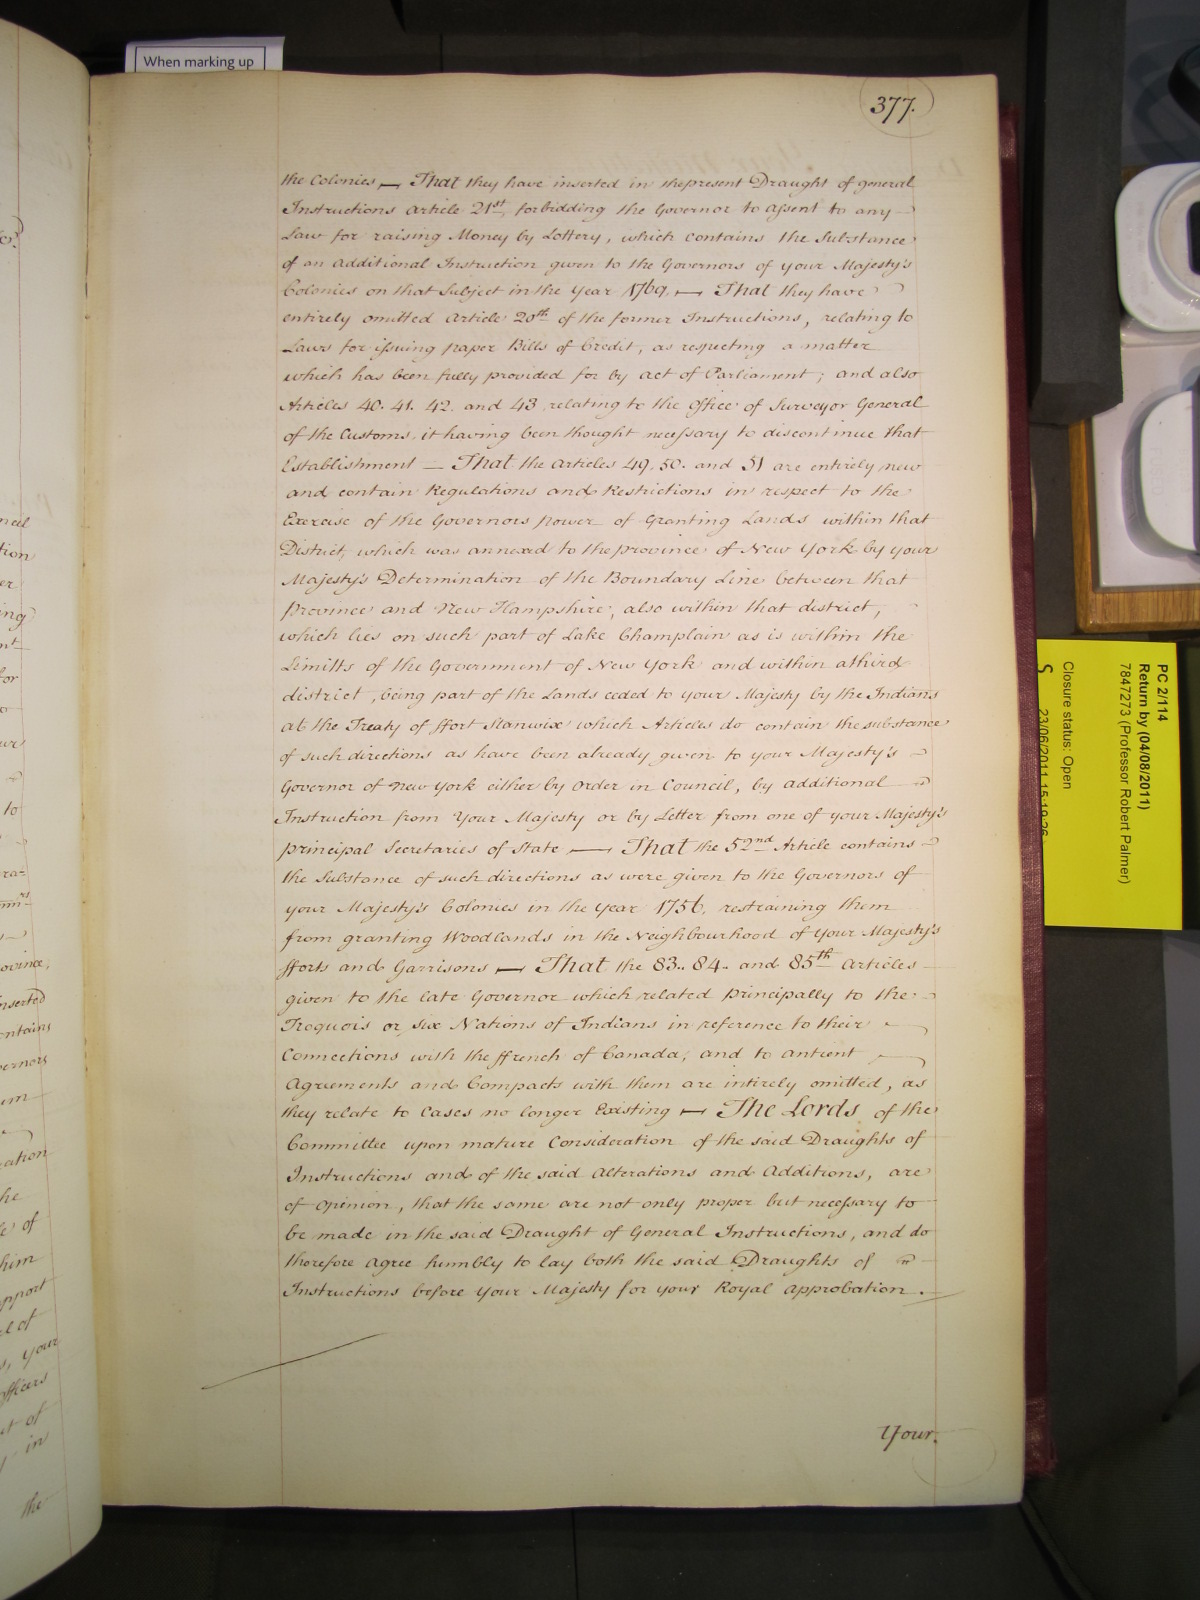 When marking up
377.
the Colonies — That they have inserted in the present Draught of general
Instructions Article 21st forbidding the Governor to assent to any
Law for raising Money by Lottery, which contains the Substance
of an Additional Instruction given to the Governors of your Majesty's
Colonies on that Subject in the Year 1769. — That they have
entirely omitted Article 20th of the former Instructions, relating to
Laws for issuing paper Bills of Credit, as respecting a matter
which has been fully provided for by Act of Parliament; and also
Articles 40. 41. 42. and 43 relating to the Office of Surveyor General
of the Customs, it having been thought necessary to discontinue that
Establishment — That the Articles 49. 50. and 51 are entirely new
and contain Regulations and Restrictions in respect to the
Exercise of the Governors power of Granting Lands within that
District, which was annexed to the province of New York by your
Majesty's Determination of the Boundary Line between that
Province and New Hampshire, also within that district,
which lies on such part of Lake Champlain as is within the
Limitts of the Government of New York and within a third
district, being part of the Lands ceded to your Majesty by the Indians
at the Treaty of ffort Stanwix which Articles do contain the substance
of such directions as have been already given to your Majesty's
Governor of New York either by Order in Council, by additional
Instruction from Your Majesty or by Letter from one of your Majesty's
principal Secretaries of State — That the 52nd Article contains
the Substance of such directions as were given to the Governors of
your Majesty's Colonies in the Year 1756, restraining them
from granting Woodlands in the Neighbourhood of Your Majesty's
fforts and Garrisons — That the 83.. 84.. and 85th Articles
given to the late Governor which related principally to the
Iroquois or six Nations of Indians in reference to their
Connections with the ffrench of Canada, and to antient
Agreements and Compacts with them are intirely omitted, as
they relate to Cases no longer Existing — The Lords of the
Committee upon mature Consideration of the said Draughts of
Instructions and of the said Alterations and Additions, are
of opinion, that the same are not only proper but necessary to
be made in the said Draught of General Instructions, and do
therefore agree humbly to lay both the said Draughts of
Instructions before Your Majesty for your Royal Approbation.
Your.
PC 2/114
Return by (04/08/2011)
7847273 (Professor Robert Palmer)
Closure status: Open
S
23/06/2011 15:19:26
to
of
him
of
your
officers
of
in
the